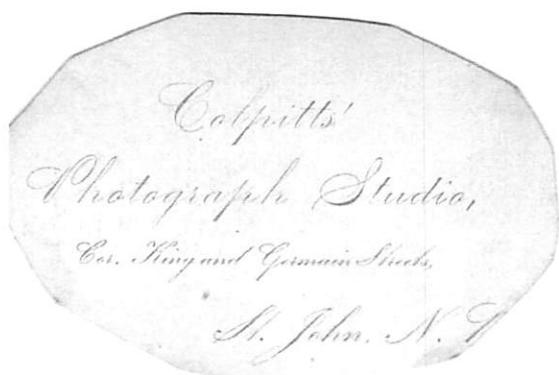 Colpitts'
Photograph Studio,
Cor. King and Germain Streets,
St. John. N.